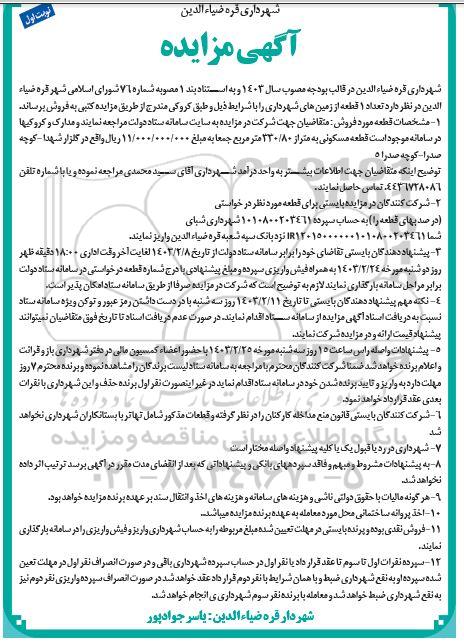 شهرداری قره ضیاءالدین
نوبت اول
آگهی مزایده
شهرداری قره ضیاء الدین در قالب بودجه مصوب سال ۱۴۰۳ و به استناد بند ۱ مصوبه شماره ۷۶ شورای اسلامی شهر قره ضیاء
الدین در نظر دارد تعداد ۱ قطعه از زمین های شهرداری را با شرایط ذیل و طبق کروکی مندرج از طریق مزایده کتبی به فروش برساند.
۱-مشخصات قطعه مورد فروش : متقاضیان جهت شرکت در مزایده به سایت سامانه ستاد دولت مراجعه نمایند و مدارک و کروکیها
در سامانه موجود است قطعه مسکونی به متراژ ۳۳۰/۸۰ متر مربع جمعا به مبلغ ۱۱/۰۰۰/۰۰۰/۰۰۰ ریال واقع در گلزار شهدا -کوچه
صدرا-کوچه صدرا ۵
توضیح اینکه متقاضیان جهت اطلاعات بیشتر به واحد درآمد شهرداری آقای سید محمدی مراجعه نموده و یا با شماره تلفن
۴۴۳۶۷۲۸۰۸۶ تماس حاصل نمایند.
۲-شرکت کنندگان در مزایده بایستی برای قطعه مورد نظر در خواستی
(در صدبهای قطعه را) به حساب سپرده ۱۰۱۰۸۰۰۲۰۳۴۶۱ شهرداری شبای
شما IR۱۲۰۱۵۰۰۰۰۰۰۱۰۱۰۸۰۰۲۰۳۴۶۱ نزد بانک سپه شعبه قره ضیاء الدین واریز نمایند.
۳-پیشنهاد دهندگان بایستی تقاضای خود را برابر سامانه ستاد دولت از تاریخ ۱۴۰۳/۲/۸ لغایت آخر وقت اداری ۱۸:۰۰ دقیقه ظهر
روز دو شنبه مورخه ۱۴۰۳/۲/۲۴ به همراه فیش واریزی سپرده و مبلغ پیشنهادی با درج شماره قطعه درخواستی در سامانه ستاد دولت
برابر مراحل سامانه بارگذاری نمایند لازم به توضیح است که شرکت در مزایده صرفا از طریق سامانه ستاد امکان پذیر است.
۴- نکته مهم پیشنهاد دهندگان بایستی تا تاریخ ۱۴۰۳/۲/۱۱ روز سه شنبه با در دست داشتن رمز عبور و توکن ویژه سامانه ستاد
نسبت به دریافت اسناد آگهی مزایده از سامانه ستاد اقدام نمایند. در صورت عدم دریافت اسناد تا تاریخ فوق متقاضیان نمیتوانند
پیشنهاد قیمت ارائه و در مزایده شرکت نمایند.
۵- پیشنهادات واصله راس ساعت ۱۵ روز سه شنبه مورخه ۱۴۰۳/۲/۲۵ با حضور اعضاء کمسیون مالی در دفتر شهرداری باز و قرائت
و اعلام برنده خواهد شد ضمنا شرکت کنندگان محترم با مراجعه به سامانه ستاد لیست برندگان را مشاهده نموده و برنده محترم ۷ روز
مهلت دارد به واریز و تایید برنده شدن خود در سامانه ستاد اقدام نماید در غیر اینصورت نفر اول برنده حذف و این شهرداری با نفرات
بعدی عقد قرارداد خواهد نمود.
۶-شرکت کنندگان بایستی قانون منع مداخله کارکنان را در نظر گرفته و قطعات مذکور شامل تهاتر با بستانکاران شهرداری نخواهد
شد
۷- شهرداری در رد یا قبول یک یا کلیه پیشنهاد واصله مختار است
۸-به پیشنهادات مشروط و مبهم و فاقد سپرده های بانکی و پیشنهاداتی که بعد از انقضای مدت مقرر در آگهی برسد ترتیب اثر داده
نخواهد شد.
۹-هر گونه مالیات با حقوق دولتی ناشی و هزینه های سامانه و هزینه های اخذ و انتقال سند بر عهده برنده مزایده خواهد بود.
۱۰-اخذ پروانه ساختمانی محل مورد معامله به عهده برنده مزایده میباشد.
۱۱-فروش نقدی بوده و برنده بایستی در مهلت تعیین شده مبلغ مربوطه را به حساب شهرداری واریز و فیش واریزی را در سامانه بارگذاری
نمایند.
۱۲-سپرده نفرات اول تا سوم تا عقد قرار داد یا نفر اول در حساب سپرده شهرداری باقی و در صورت انصراف نفر اول در مهلت تعین
شده سپرده او به نفع شهرداری ضبط و با همان شرایط با نفر دوم قرار داد عقد خواهد شد در صورت انصراف سپرده واریزی نفر دوم نیز
به نفع شهرداری ضبط خواهد شد و معامله با برنده نفر سوم شهرداری انجام خواهد شد.
شهردار قره ضیاءالدین : یاسر جوادپور